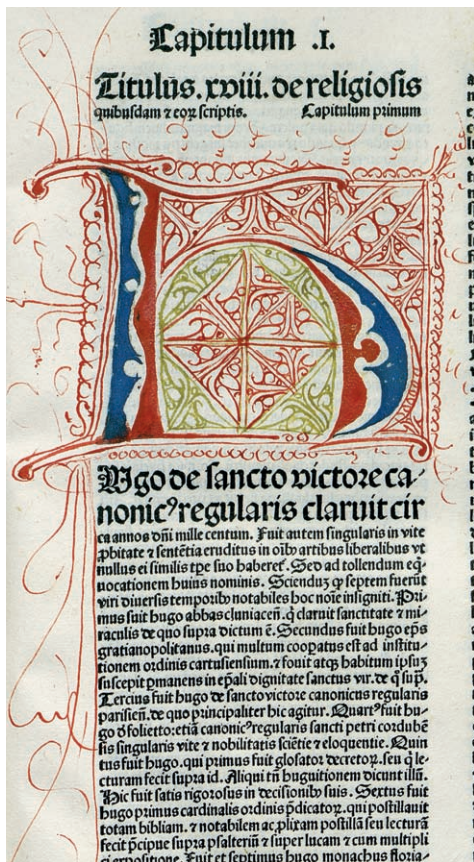 Capitulum .I.
Titulus. xviii. de religiosis
quibusdam ⁊ eoꝝ scriptis. Capitulum primum
H
Ugo de sancto victore ca-
nonicꝰ regularis claruit cir
ca annos dñi mille centum. Fuit autem singularis in vite
ꝓbitate ⁊ sentẽtia eruditus in oĩb artibus liberalibus vt
nullus ei similis tpe suo haberet᷑. Sed ad tollendum eq̃-
uocationem huius nominis. Sciendum ꝙ septem fuerũt
viri diuersis temporib notabiles hoc noĩe insigniti. Pri
mus fuit hugo abbas cluniaceñ. q̃ claruit sanctitate ⁊ mi-
raculis de quo supra dictum ẽ. Secundus fuit hugo ep̃s
gratianopolitanus. qui multum coopatus est ad institu-
tionem ordinis cartusiensium. ⁊ fouit atqꝫ habitum ipsuꝫ
suscepit pmanens in ep̃ali dignitate sanctus vir. de q̃ sup̃.
Tercius fuit hugo de sancto victore canonicus regularis
parisieñ. de quo principaliter hic agitur. Quartꝰ fuit hu-
go ð folietto: etiã canonicꝰ regularis sancti petri cordubẽ
sis singularis vite ⁊ nobilitatis sciẽtie ⁊ eloquentie. Quin
tus fuit hugo. qui primus fuit glosator decretoꝝ. seu q̃ le-
cturam fecit supra id. Aliqui tñ huguitionem dicunt illũ.
Hic fuit satis rigorosus in decisionib suis. Sextus fuit
hugo primus cardinalis ordinis p̃dicatoꝝ. qui postillauit
totam bibliam. ⁊ notabilem ac ꝓlixam postillã seu lecturã
fecit p̃cipue supra psalteriũ ⁊ super lucam ⁊ cum multipli
ci expositione. Fuit et septimus hugo monachus floria